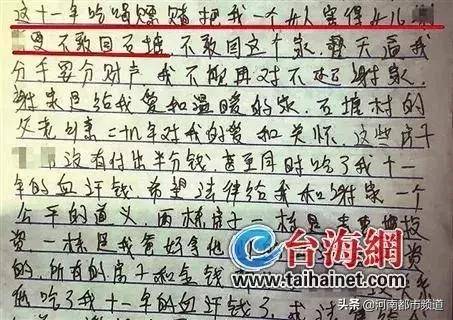 这十一年吃喝嫖赌把我一个女人害得女儿
不敢回石塘，不敢回这个家，整天逼我
分手要分财产 我不能再对不起谢家，
谢家是给我爱和温暖的家。石塘村的
父老乡亲二十几年对我的爱和关怀。这些房子
没有付出半分钱 甚至同时吃了我十一
年的血汗钱 希望法律给我和谢家一个
公平的道义 两栋房子一栋是
资 一栋是我爸好拿他 资
的，所有的房子和金钱
他吃了我十一年的血汗钱了 求
台海網
www.taihainet.com
头条 @河南都市频道